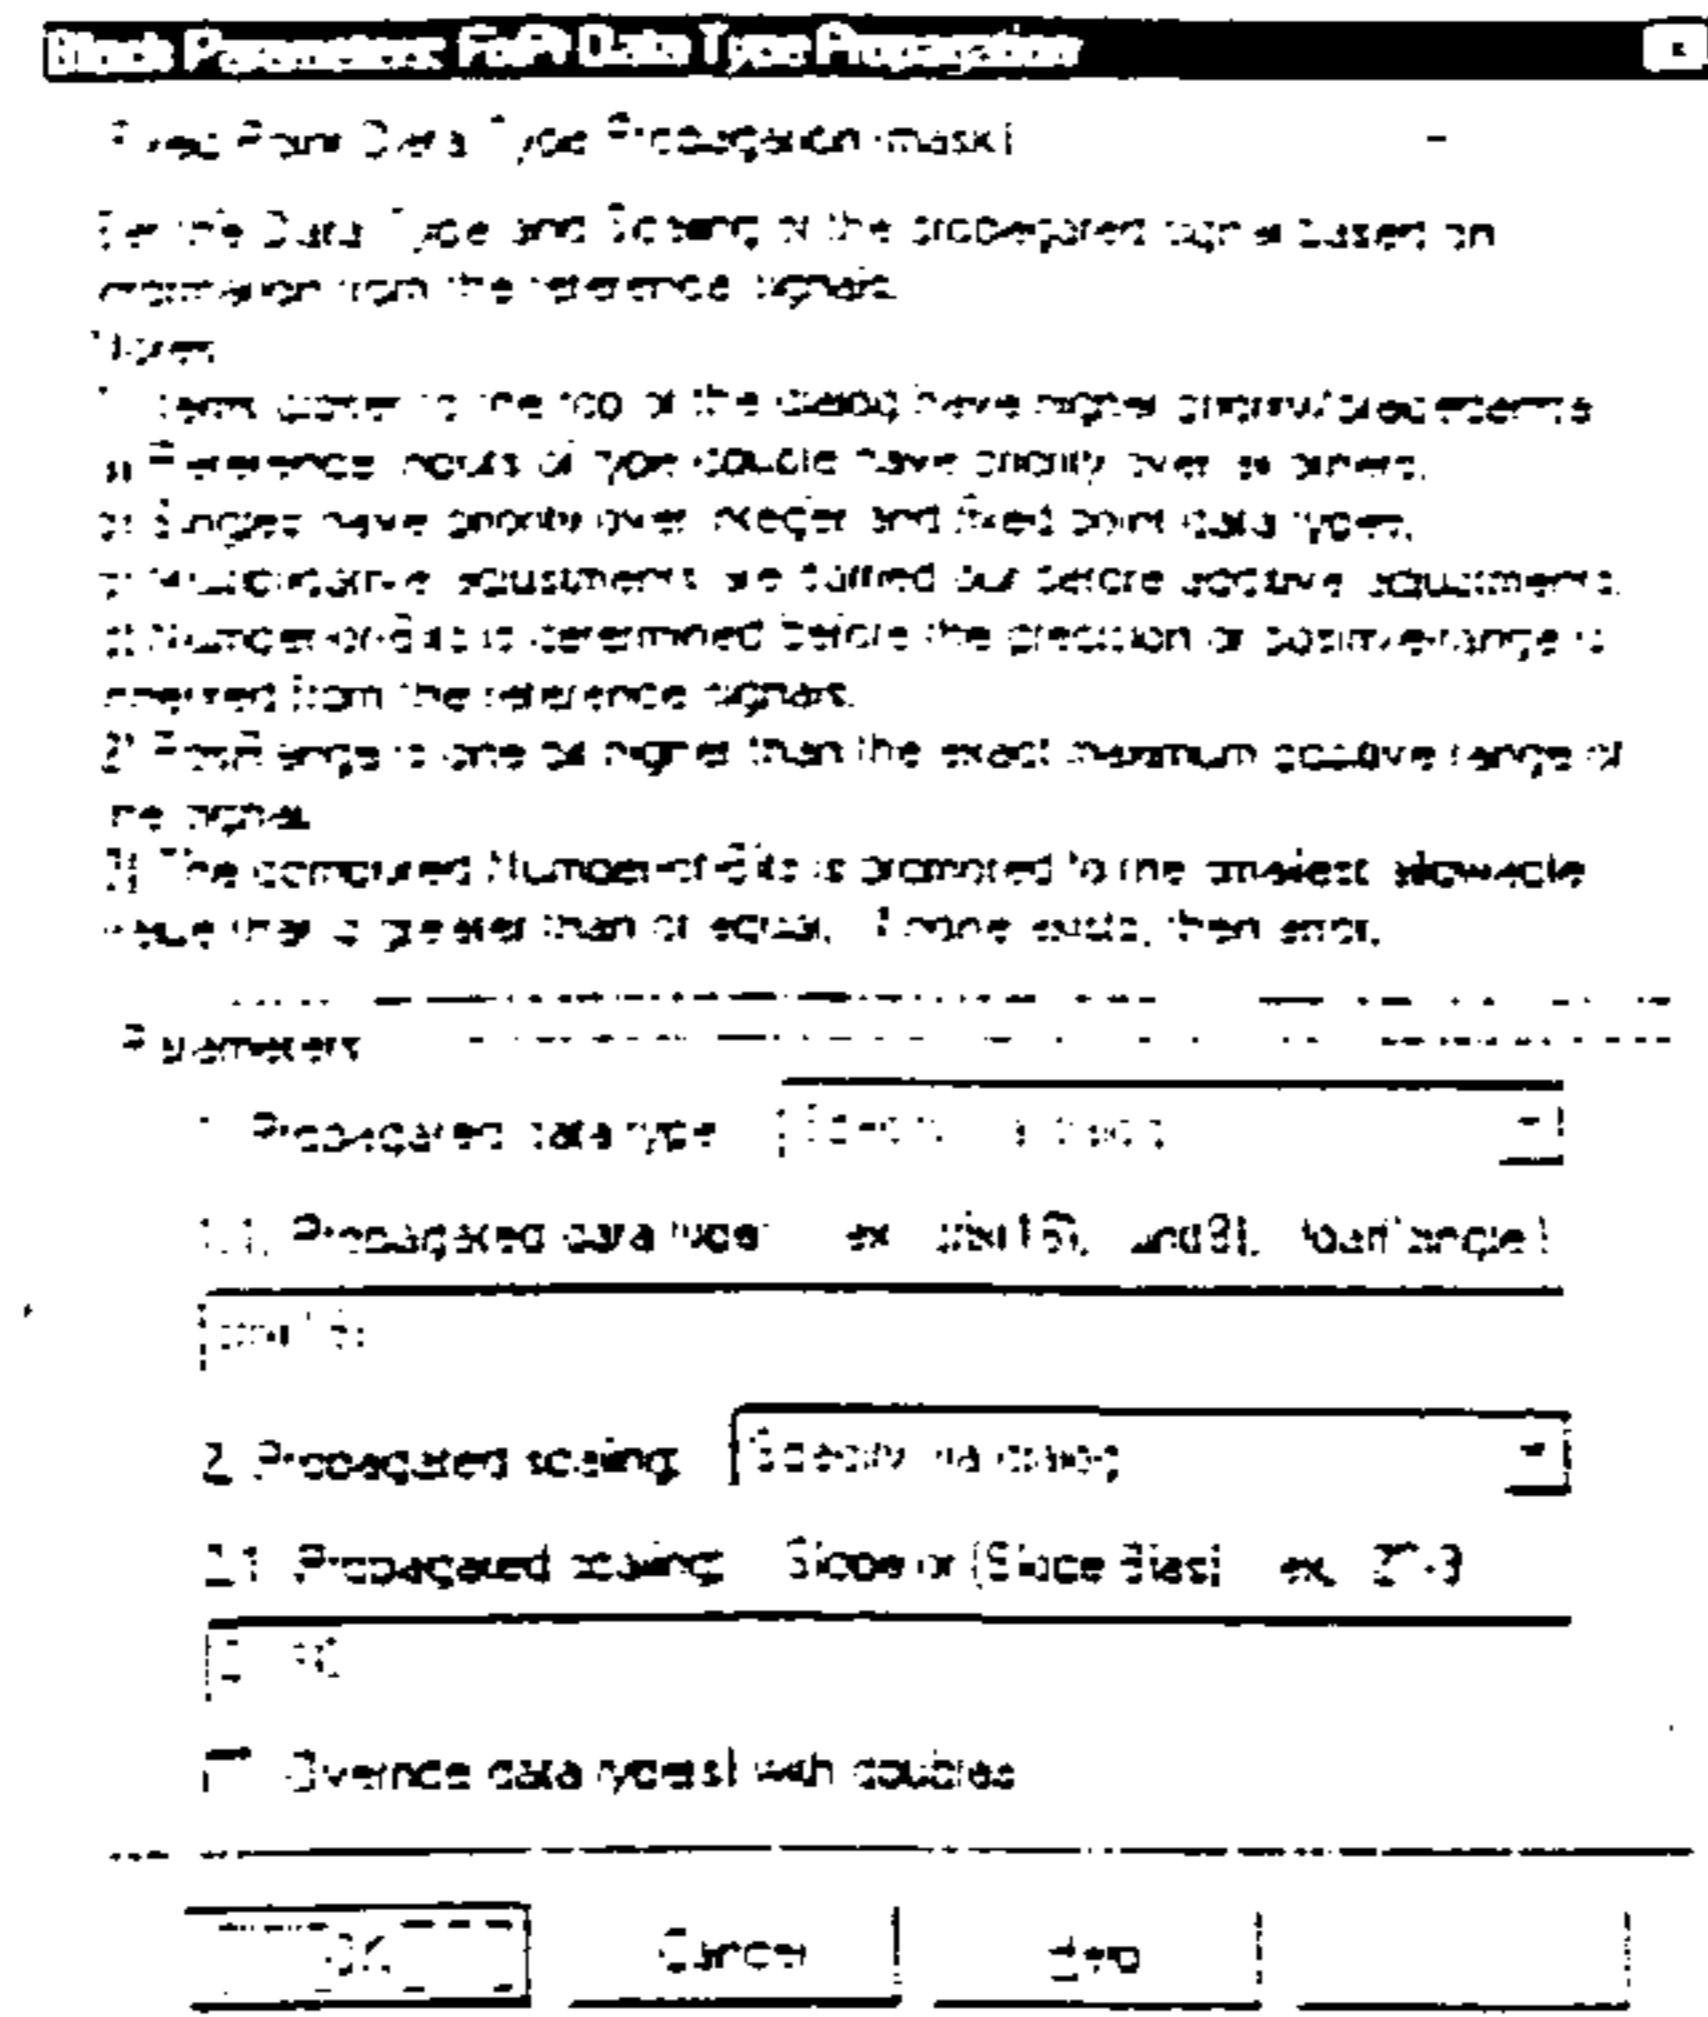 Block Parameters: FixPt Data Type Propagation
Fixed-Point Data Type Propagation (mask)
Set the Data Type and Scaling of the propagated signal based on
information from the reference signals.
Notes:
1) Items closer to the top of the dialog have higher priority/precedence
Reference inputs of type double have priority over all others.
Singles have priority over integer and fixed point data types.
Multiplicative adjustments are carried out before additive adjustments.
Number-of-Bits is determined before the precision or positive-range is
inherited from the reference signals.
2) PosRange is one bit higher than the exact maximum positive range of
the signal.
3) The computed Number-of-Bits is promoted to the smallest allowable
value that is greater than or equal. If none exists, then error.
Parameters
1. Propagated data type
1.1. Propagated data type: ex. sfix(16), uint(8), float('single')
2. Propagated scaling: Specify via dialog
2.1. Propagated scaling: Slope or [Slope Bias] ex. 2^-9
Override data type(s) with doubles
OK Cancel Help